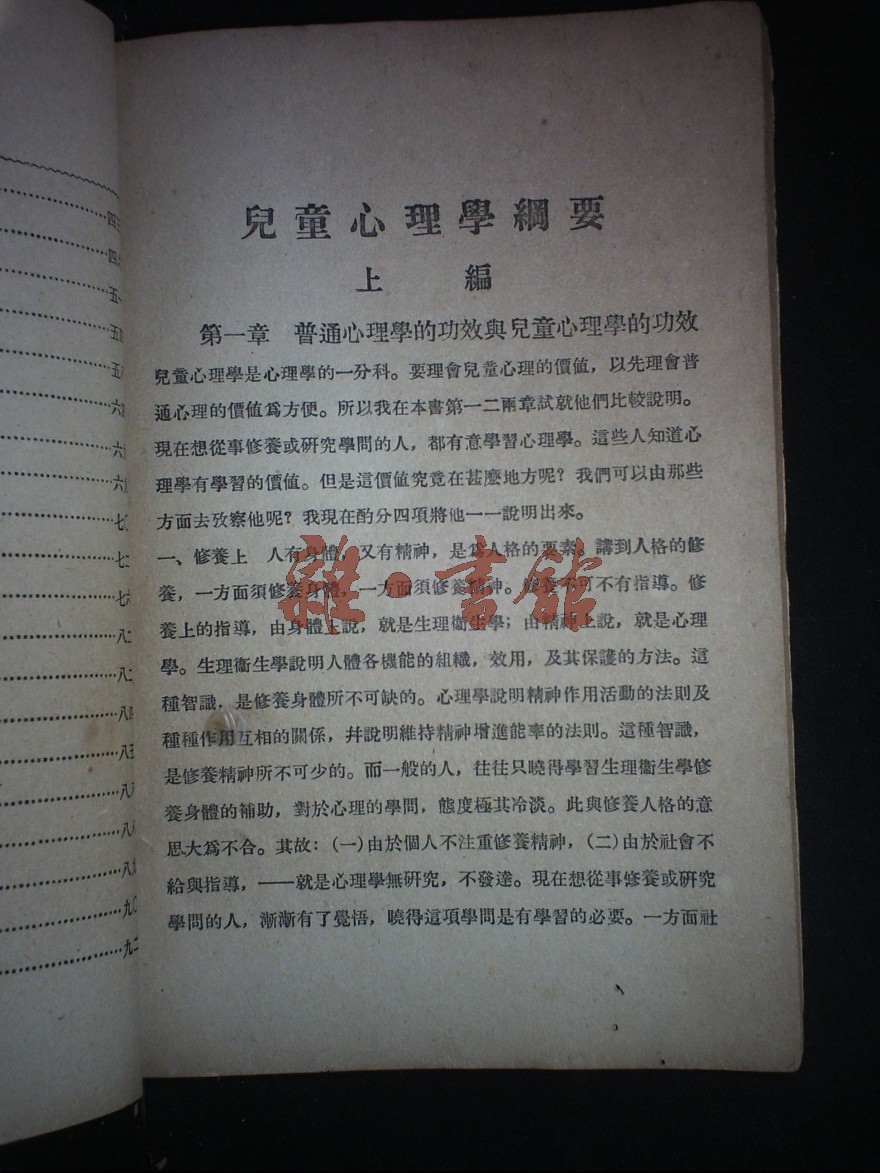 兒童心理學綱要
上 編
第一章 普通心理學的功效與兒童心理學的功效
兒童心理學是心理學的一分科。要理會兒童心理的價値，以先理會普
通心理的價値爲方便。所以我在本書第一二兩章試就他們比較說明。
現在想從事修養或研究學問的人，都有意學習心理學。這些人知道心
理學有學習的價値。但是這價値究竟在甚麽地方呢？我們可以由那些
方面去攷察他呢？我現在酌分四項將他一一說明出來。
一、修養上 人有身體，又有精神，是爲人格的要素。講到人格的修
養，一方面須修養身體，一方面須修養精神。修養不可不有指導。修
養上的指導，由身體上說，就是生理衞生學；由精神上說，就是心理
學。生理衞生學說明人體各機能的組織，效用，及其保護的方法。這
種智識，是修養身體所不可缺的。心理學說明精神作用活動的法則及
種種作用互相的關係，幷說明維持精神增進能率的法則。這種智識，
是修養精神所不可少的。而一般的人，往往只曉得學習生理衞生學修
養身體的補助，對於心理的學問，態度極其冷淡。此與修養人格的意
思大爲不合。其故：(一)由於個人不注重修養精神，(二)由於社會不
給與指導，——就是心理學無研究，不發達。現在想從事修養或研究
學問的人，漸漸有了覺悟，曉得這項學問是有學習的必要。一方面社
雜·書館
五一
五四
五八
七〇
七六
八二
八二
八五
九〇
九二